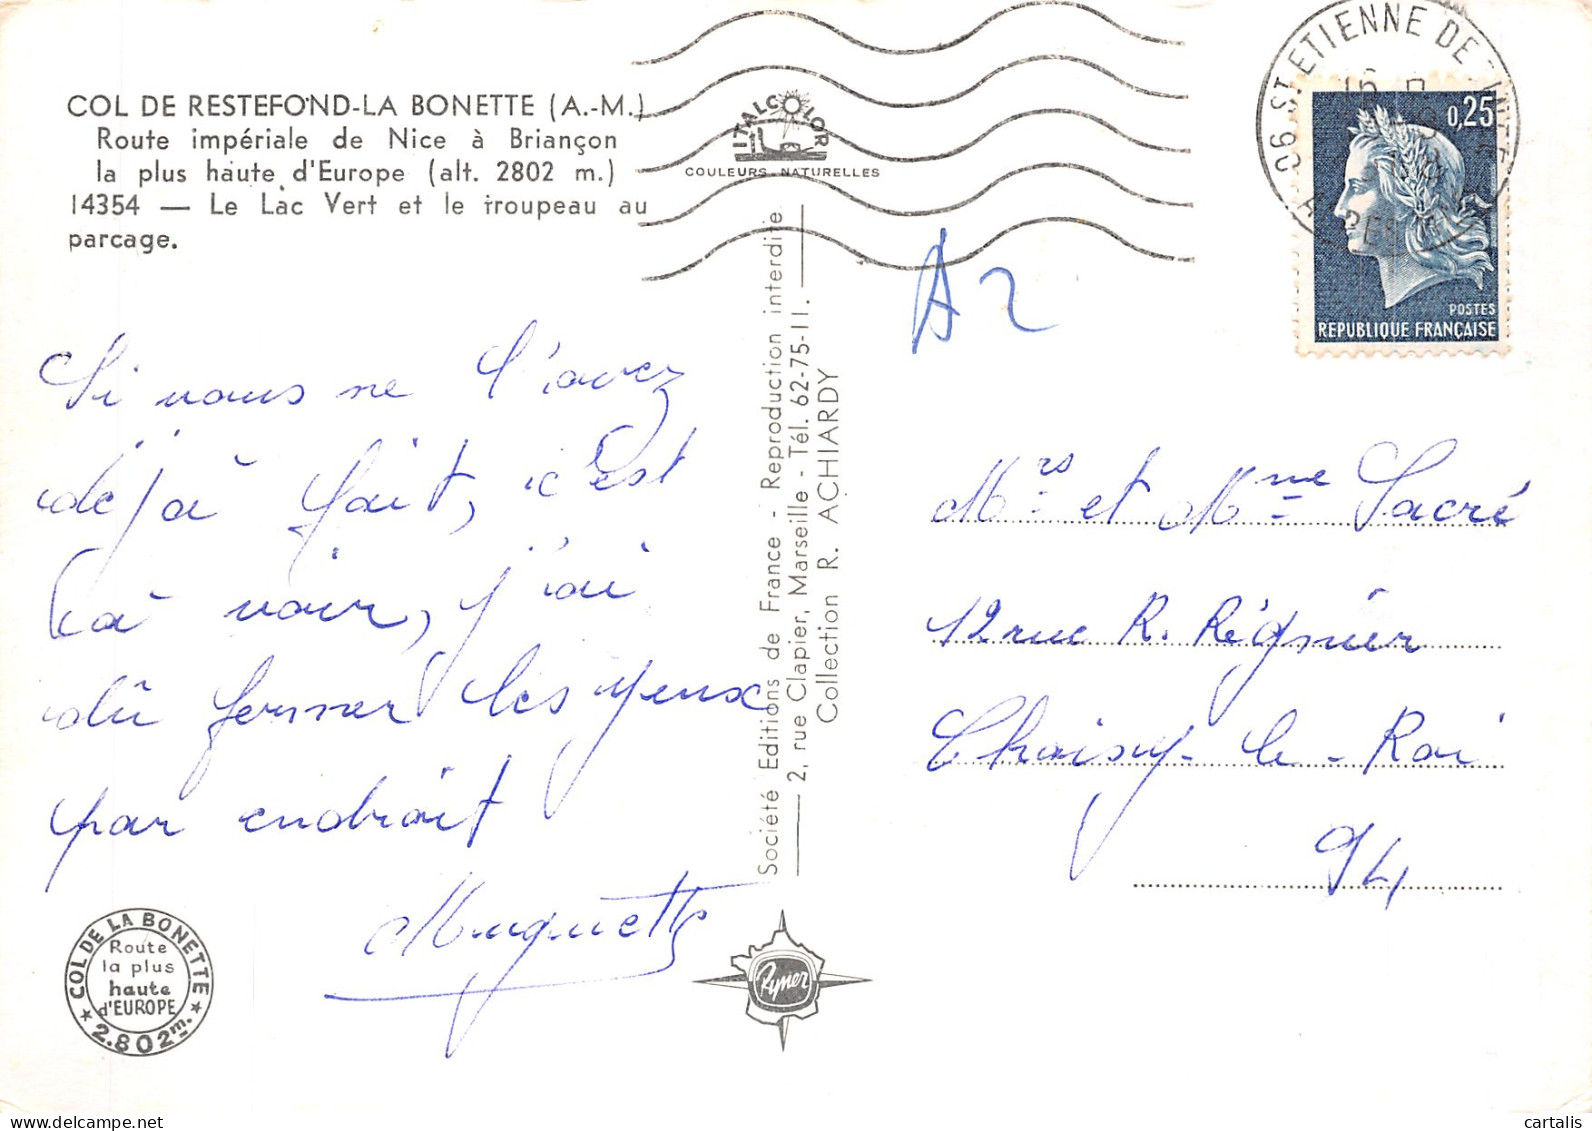 COL DE RESTEFOND-LA BONETTE (A.-M.)
Route impériale de Nice à Briançon
la plus haute d'Europe (alt. 2802 m.)
14354 — Le Lac Vert et le troupeau au
parcage.
ITALCOLOR
COULEURS NATURELLES
06 ST ETIENNE DE TINEE
0,25
POSTES
REPUBLIQUE FRANÇAISE
A2
Si nous ne l'avez
déjà fait, c'est
là voir, j'ai
dû fermer les yeux
par endroit
Muguette
Société Editions de France - Reproduction interdite
2, rue Clapier, Marseille - Tél. 62-75-11.
Collection R. ACHIARDY
Mrs et Mme Sacré
12 rue R. Régnier
Choisy-le-Roi
94
COL DE LA BONETTE
Route
la plus
haute
d'EUROPE
2.802 m.
Rymer
cartalis